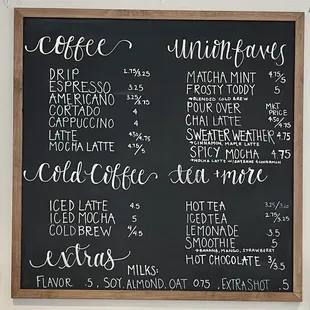 coffee
DRIP 2.75/3.25
ESPRESSO 3.25
AMERICANO
CORTADO 4
CAPPUCCINO 4
LATTE 4.5/4.75
MOCHA LATTE 4.75/5
union faves
MATCHA MINT 4.75/5
FROSTY TODDY 5
*BLENDED COLD BREW
POUR OVER MKT PRICE
CHAI LATTE 4.5/4.75
SWEATER WEATHER 4.75
*CINNAMON, MAPLE LATTE
SPICY MOCHA 4.75
*MOCHA LATTE W/CAYENNE CINNAMON
Cold Coffee
ICED LATTE 4.5
ICED MOCHA 5
COLD BREW 4/4.5
tea + more
HOT TEA
ICED TEA 2.75/3.25
LEMONADE 3.5
SMOOTHIE 5
*BANANA, MANGO, STRAWBERRY
HOT CHOCOLATE 3/3.5
extras
MILKS:
FLAVOR .5 SOY, ALMOND, OAT 0.75 EXTRA SHOT .5